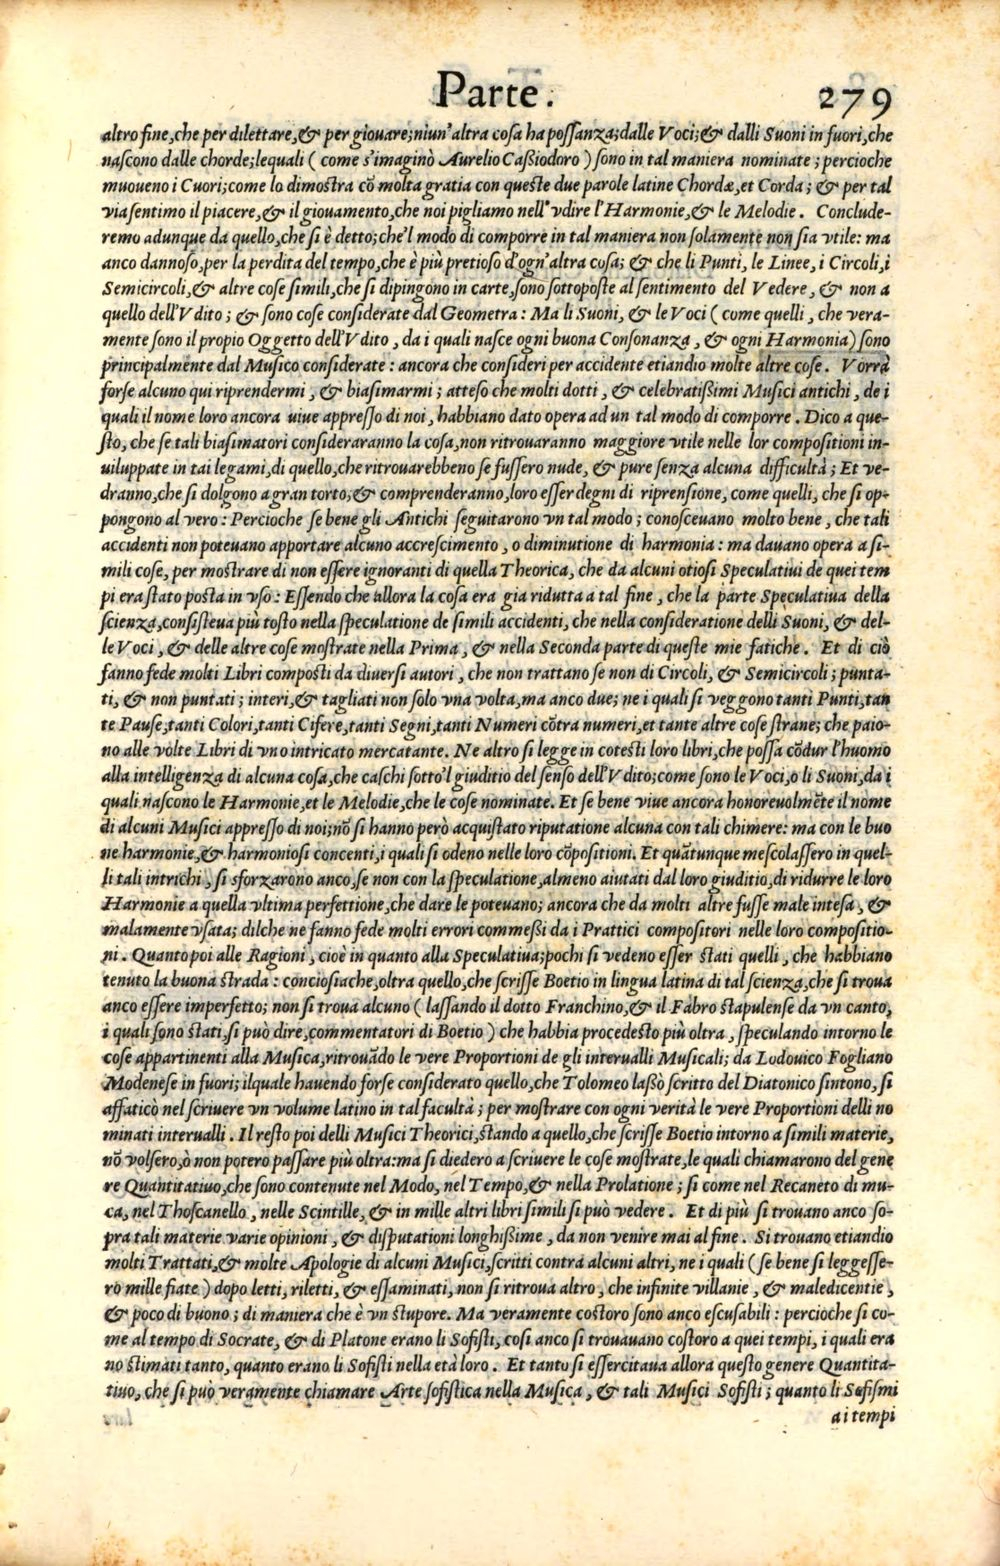 Parte. 279
altro fine,che per dilettare,& per giouare;niun'altra cosa ha possanza;dalle Voci;& dalli Suoni in fuori,che
nascono dalle chorde;lequali (come s'imaginò Aurelio Caßiodoro) sono in tal maniera nominate; percioche
muoueno i Cuori;come lo dimostra cō molta gratia con queste due parole latine Chordæ,et Corda; & per tal
via sentimo il piacere,& il giouamento,che noi pigliamo nell'vdire l'Harmonie,& le Melodie. Conclude-
remo adunque da quello,che si è detto;che'l modo di comporre in tal maniera non solamente non sia vtile: ma
anco dannoso,per la perdita del tempo,che è più pretioso d'ogn'altra cosa; & che li Punti, le Linee, i Circoli,i
Semicircoli,& altre cose simili,che si dipingono in carte,sono sottoposte al sentimento del Vedere, & non a
quello dell'Vdito; & sono cose considerate dal Geometra: Ma li Suoni, & le Voci (come quelli, che vera-
mente sono il propio Oggetto dell'Vdito, da i quali nasce ogni buona Consonanza, & ogni Harmonia) sono
principalmente dal Musico considerate: ancora che consideri per accidente etiandio molte altre cose. Vorrà
forse alcuno qui riprendermi, & biasimarmi; atteso che molti dotti, & celebratißimi Musici antichi, de i
quali il nome loro ancora uiue appresso di noi, habbiano dato opera ad un tal modo di comporre. Dico a que-
sto, che se tali biasimatori consideraranno la cosa,non ritrouaranno maggiore vtile nelle lor compositioni in-
uiluppate in tai legami,di quello,che ritrouarebbeno se fussero nude, & pure senza alcuna difficultà; Et ve-
dranno,che si dolgono a gran torto;& comprenderanno,loro esser degni di riprensione, come quelli, che si op-
pongono al vero: Percioche se bene gli Antichi seguitarono vn tal modo; conosceuano molto bene, che tali
accidenti non poteuano apportare alcuno accrescimento, o diminutione di harmonia: ma dauano opera a si-
mili cose, per mostrare di non essere ignoranti di quella Theorica, che da alcuni otiosi Speculatiui de quei tem
pi era stato posta in vso: Essendo che allora la cosa era gia ridutta a tal fine, che la parte Speculatiua della
scienza,consisteua più tosto nella speculatione de simili accidenti, che nella consideratione delli Suoni, & del-
le Voci, & delle altre cose mostrate nella Prima, & nella Seconda parte di queste mie fatiche. Et di ciò
fanno fede molti Libri composti da diuersi autori, che non trattano se non di Circoli, & Semicircoli; punta-
ti, & non puntati; interi,& tagliati non solo vna volta,ma anco due; ne i quali si veggono tanti Punti,tan
te Pause,tanti Colori,tanti Cifere,tanti Segni,tanti Numeri cōtra numeri,et tante altre cose strane; che paio-
no alle volte Libri di vno intricato mercatante. Ne altro si legge in cotesti loro libri,che possa cōdur l'huomo
alla intelligenza di alcuna cosa,che caschi sotto'l giuditio del senso dell'Vdito;come sono le Voci,o li Suoni,da i
quali nascono le Harmonie,et le Melodie,che le cose nominate. Et se bene viue ancora honoreuolmēte il nome
di alcuni Musici appresso di noi;nō si hanno però acquistato riputatione alcuna con tali chimere: ma con le buo
ne harmonie,& harmoniosi concenti,i quali si odeno nelle loro cōpositioni. Et quātunque mescolassero in quel-
li tali intrichi, si sforzarono anco,se non con la speculatione,almeno aiutati dal loro giuditio,di ridurre le loro
Harmonie a quella vltima perfettione,che dare le poteuano; ancora che da molti altre fusse male intesa, &
malamente vsata; dilche ne fanno fede molti errori commeßi da i Prattici compositori nelle loro compositio-
ni. Quanto poi alle Ragioni, cioè in quanto alla Speculatiua;pochi si vedeno esser stati quelli, che habbiano
tenuto la buona strada: conciosiache,oltra quello,che scrisse Boetio in lingua latina di tal scienza,che si troua
anco essere imperfetto; non si troua alcuno (lassando il dotto Franchino,& il Fabro stapulense da vn canto,
i quali sono stati,si può dire,commentatori di Boetio) che habbia procedesto più oltra, speculando intorno le
cose appartinenti alla Musica,ritrouādo le vere Proportioni de gli interualli Musicali; da Lodouico Fogliano
Modenese in fuori; ilquale hauendo forse considerato quello,che Tolomeo laßò scritto del Diatonico sintono, si
affaticò nel scriuere vn volume latino in tal facultà; per mostrare con ogni verità le vere Proportioni delli no
minati interualli. Il resto poi delli Musici Theorici,stando a quello,che scrisse Boetio intorno a simili materie,
nō volsero,ò non potero passare più oltra:ma si diedero a scriuere le cose mostrate,le quali chiamarono del gene
re Quantitatiuo,che sono contenute nel Modo, nel Tempo,& nella Prolatione; si come nel Recaneto di mu-
ca, nel Thoscanello, nelle Scintille, & in mille altri libri simili si può vedere. Et di più si trouano anco so-
pra tali materie varie opinioni, & disputationi longhißime, da non venire mai al fine. Si trouano etiandio
molti Trattati,& molte Apologie di alcuni Musici,scritti contra alcuni altri, ne i quali (se bene si leggesse-
ro mille fiate) dopo letti, riletti, & essaminati, non si ritroua altro, che infinite villanie, & maledicentie,
& poco di buono; di maniera che è vn stupore. Ma veramente costoro sono anco escusabili: percioche si co-
me al tempo di Socrate, & di Platone erano li Sofisti, cosi anco si trouauano costoro a quei tempi, i quali era
no stimati tanto, quanto erano li Sofisti nella età loro. Et tanto si essercitaua allora questo genere Quantita-
tiuo, che si può veramente chiamare Arte sofistica nella Musica, & tali Musici Sofisti; quanto li Sofismi
a i tempi